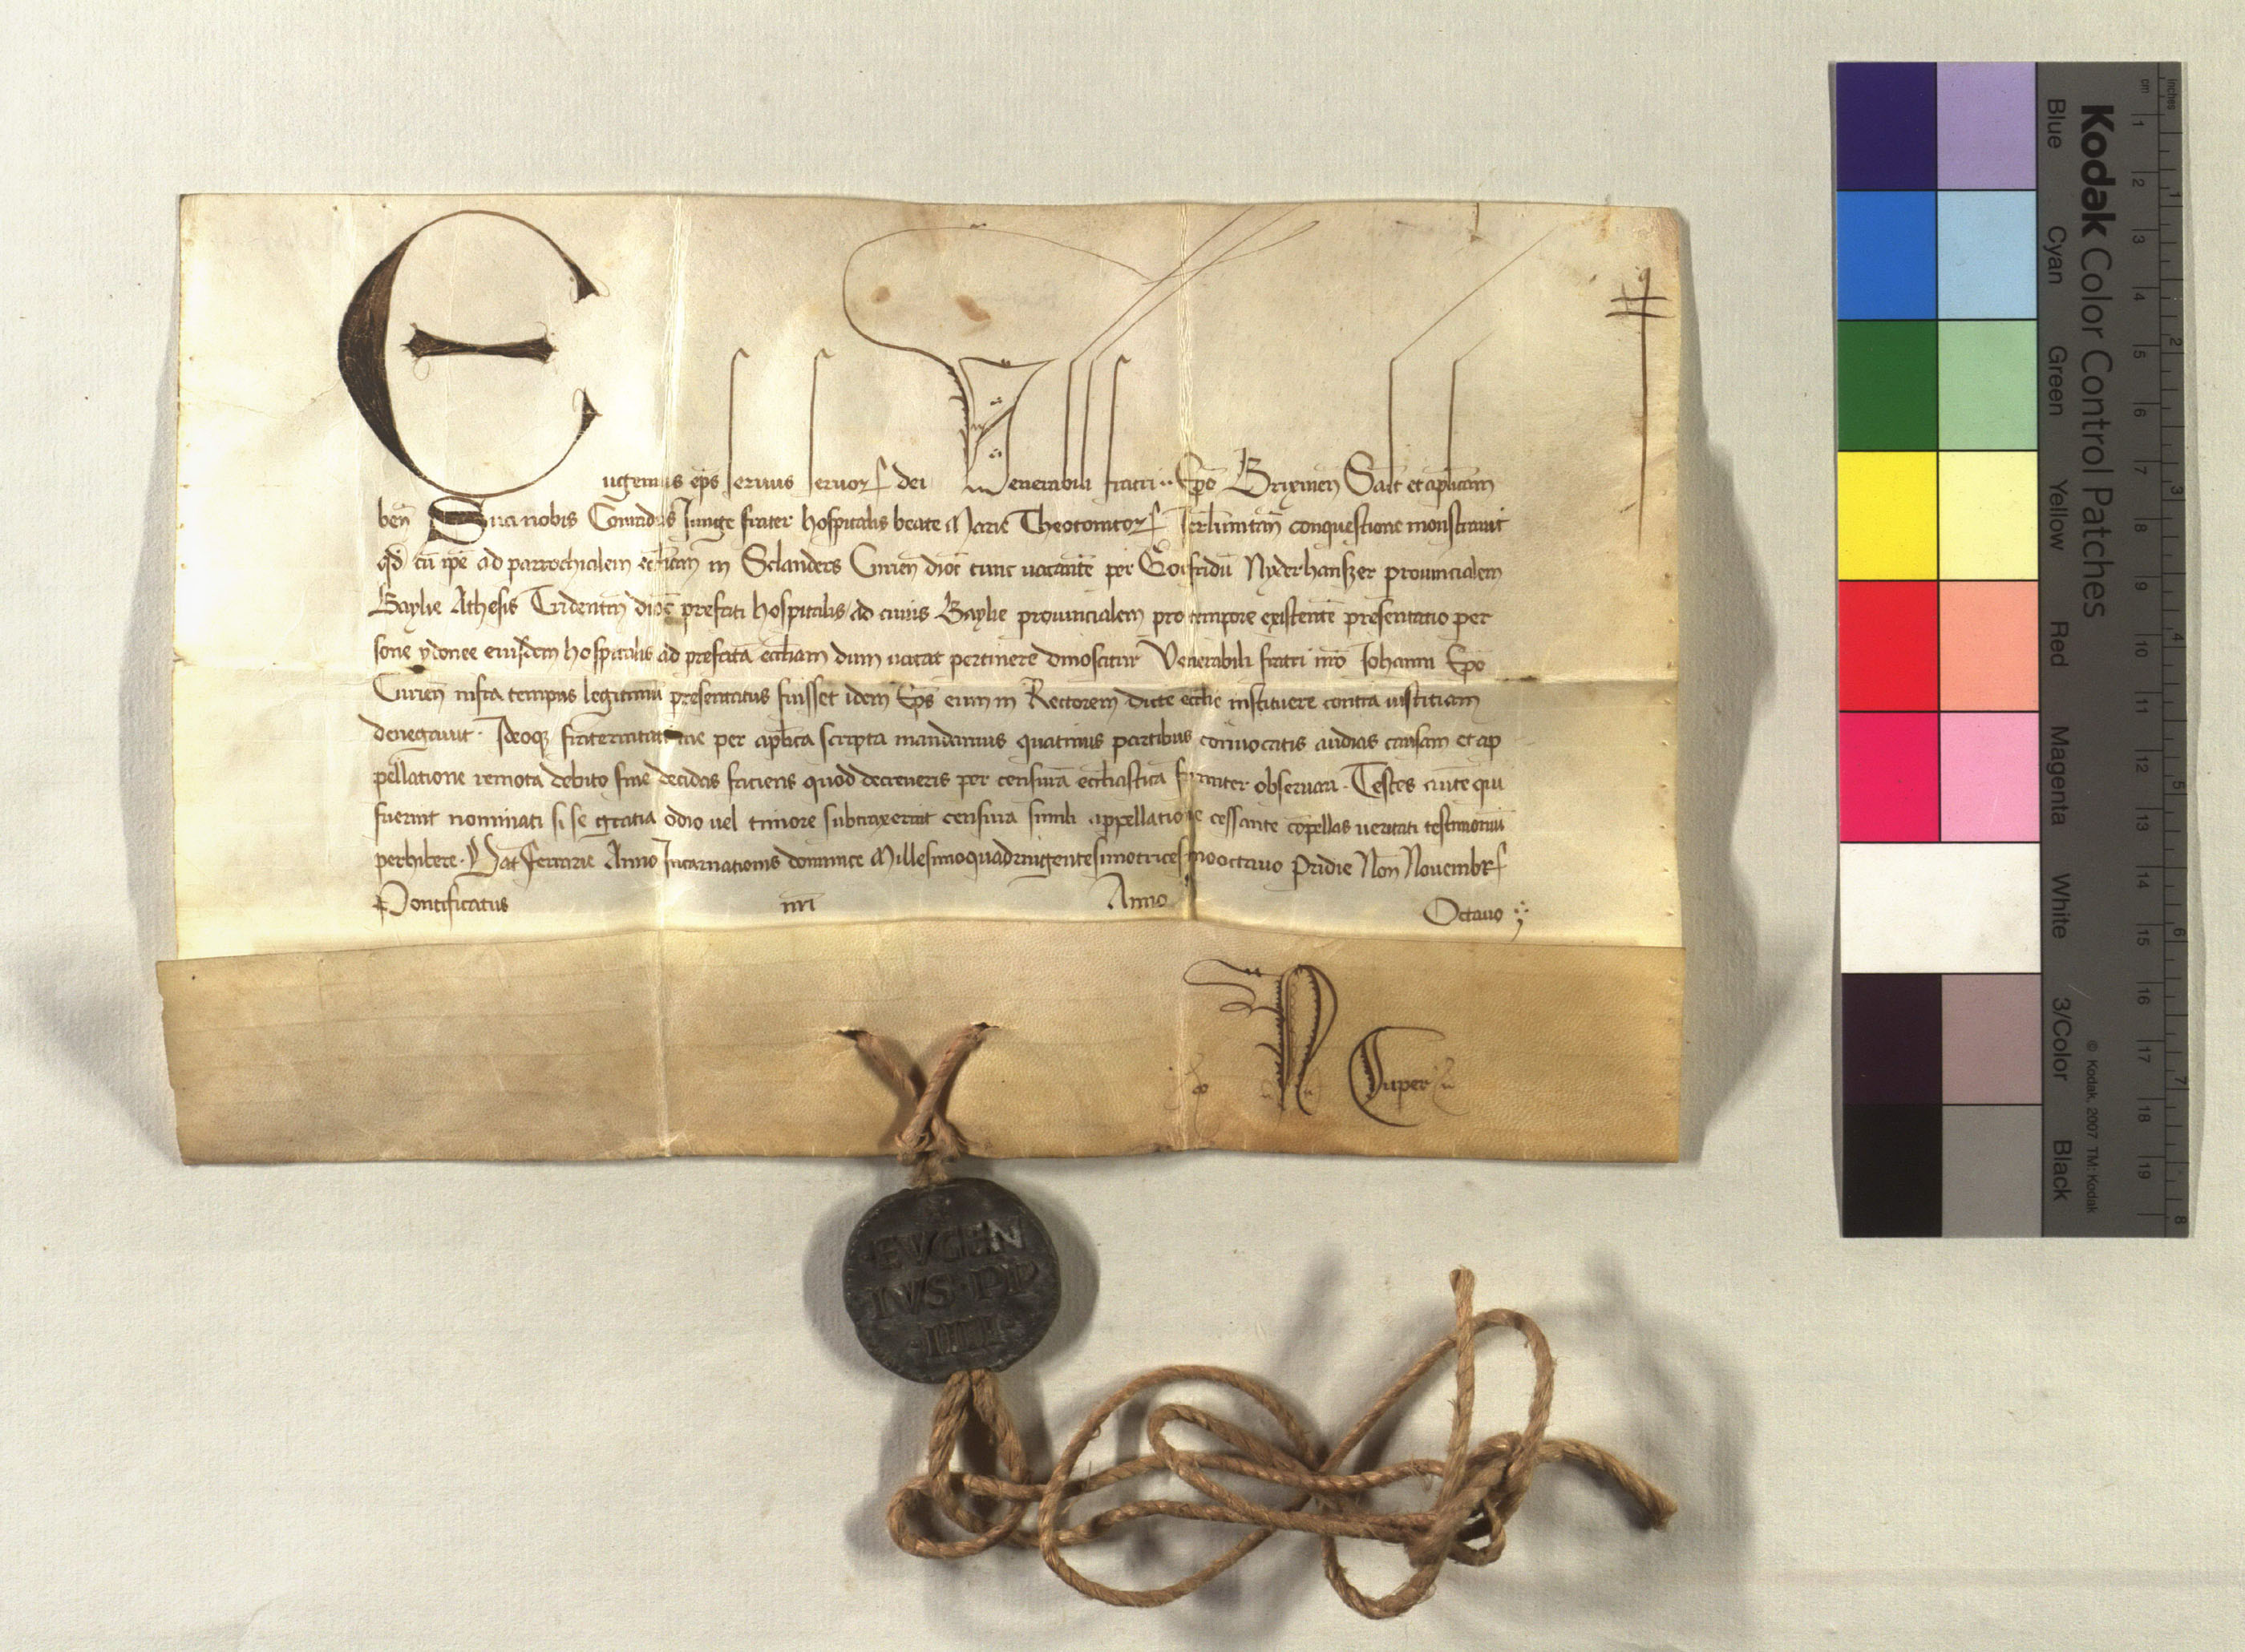 Eugenius ep̄s seruus seruorꝝ dei Venerabili fratri ·· Ep̄o Brixineñ Salt̄ et aplicam̄
beñ Sua nobis Conradus Junge frater hospitalis beate Marie Theotonicorꝝ Jerlimitañ conquestione monstrauit
qd̄ cū ip̄e ad parrochialem eccliam̄ in Slanders Curieñ dioc̄ tunc uacantē per Gotfridū Nyderhauszer prouincialem
Baylie Athesis Tridentiñ dioc̄ prefati hospitalis ad cuius Baylie prouincialem pro tempore existentē presentatio per
sone ydonee eiusdem hospitalis ad prefatā eccliam dum uacat pertinere dinoscitur Venerabili fratri nr̄o Johanni Ep̄o
Curieñ infra tempus legitimū presentatus fuisset idem Ep̄s eum in Rectorem dicte ecclie instituere contra iustitiam
denegauit · Ideoqꝫ fraternitati tue per aplica scripta mandamus quatinus partibus conuocatis audias causam et ap
pellatione remota debito fine decidas faciens quod decreueris per censurā ecclesiasticā firmiter obseruari · Testes autē qui
fuerint nominati si se gratia odio uel timore subtraxerint censura simili appellatione cessante cōpellas ueritati testimoniū
perhibere · Dat̄ Ferrarie Anno Incarnationis dominice Millesimoquadringentesimotricesimooctauo Pridie Noñ Nouembrꝭ
Pontificatus nr̄i Anno Octauo
EVGEN
IVS · PP
· IIII ·
Kodak Color Control Patches
Blue Cyan Green Yellow Red Magenta White 3/Color Black
© Kodak, 2007 TM: Kodak
cm 1 2 3 4 5 6 7 8 9 10 11 12 13 14 15 16 17 18 19
inches 1 2 3 4 5 6 7 8